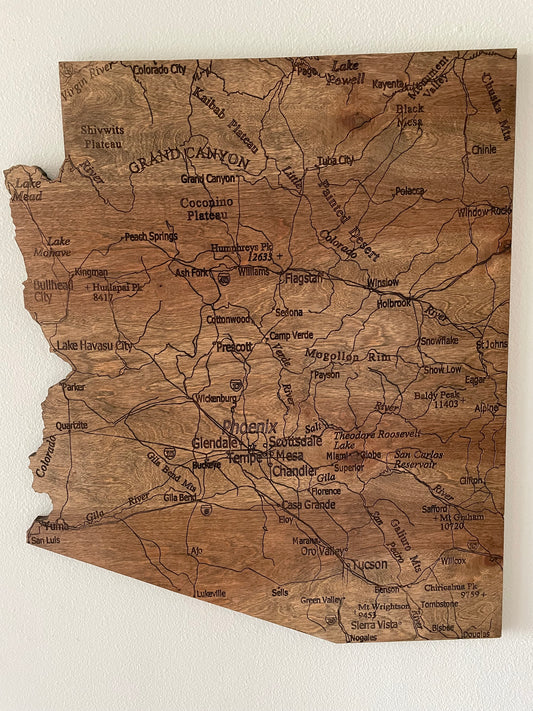 Virgin River
Colorado City
Page
Lake
Powell
Kayenta
Monument
Valley
Chuska Mts
Kaibab Plateau
Black
Mesa
Shivwits
Plateau
GRAND CANYON
Tuba City
Chinle
Lake
Mead
River
Grand Canyon
Little
Painted Desert
Polacca
Coconino
Plateau
Window Rock
Lake
Mohave
Peach Springs
Humphreys Pk
12633 +
Colorado
Kingman
Ash Fork
Williams
Flagstaff
Winslow
Bullhead
City
+ Hualapai Pk
8417
Holbrook
River
Cottonwood
Sedona
Lake Havasu City
Prescott
Camp Verde
Snowflake
St Johns
Verde
River
Mogollon Rim
Parker
Payson
Show Low
Eagar
Wickenburg
River
Baldy Peak
11403 +
Alpine
Quartzite
Phoenix
Salt
Theodore Roosevelt
Lake
Glendale
Scottsdale
Colorado
Tempe
Mesa
Miami
Globe
San Carlos
Reservoir
Gila Bend Mts
Buckeye
Chandler
Superior
Gila
Clifton
Gila Bend
Florence
River
Gila
River
Casa Grande
Safford
+ Mt Graham
10720
Yuma
San Luis
Eloy
San
Pedro
River
Galiuro Mts
Ajo
Marana
Oro Valley
Willcox
Tucson
Lukeville
Sells
Green Valley
Benson
Chiricahua Pk
9759 +
Mt Wrightson
9453
Tombstone
Sierra Vista
Bisbee
Nogales
Douglas